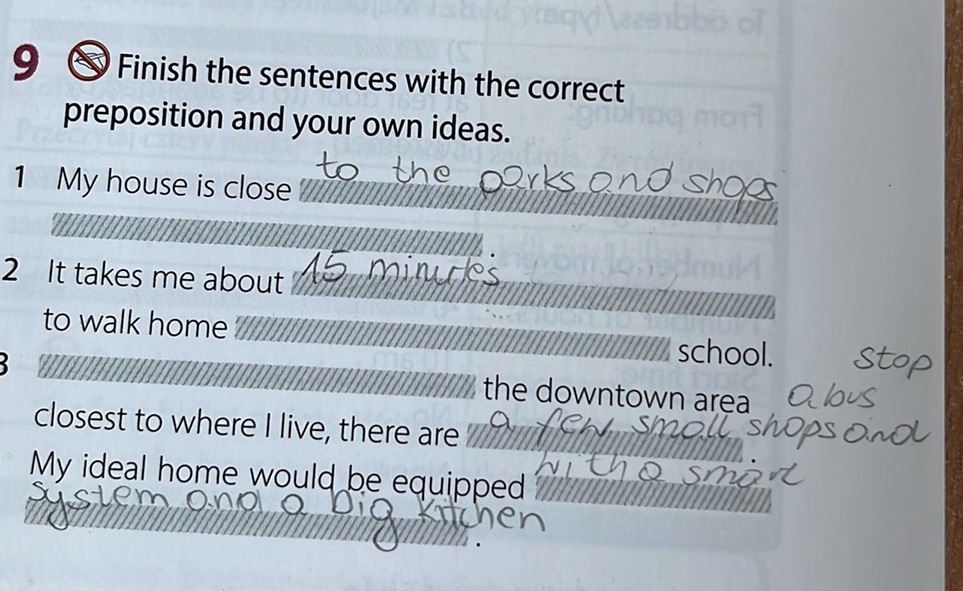 9 Finish the sentences with the correct
preposition and your own ideas.
1 My house is close to the parks and shops
.
2 It takes me about 15 minutes
to walk home school.
3 the downtown area
closest to where I live, there are a few small shops and
a bus
stop
.
My ideal home would be equipped with a smart
system and a big kitchen .